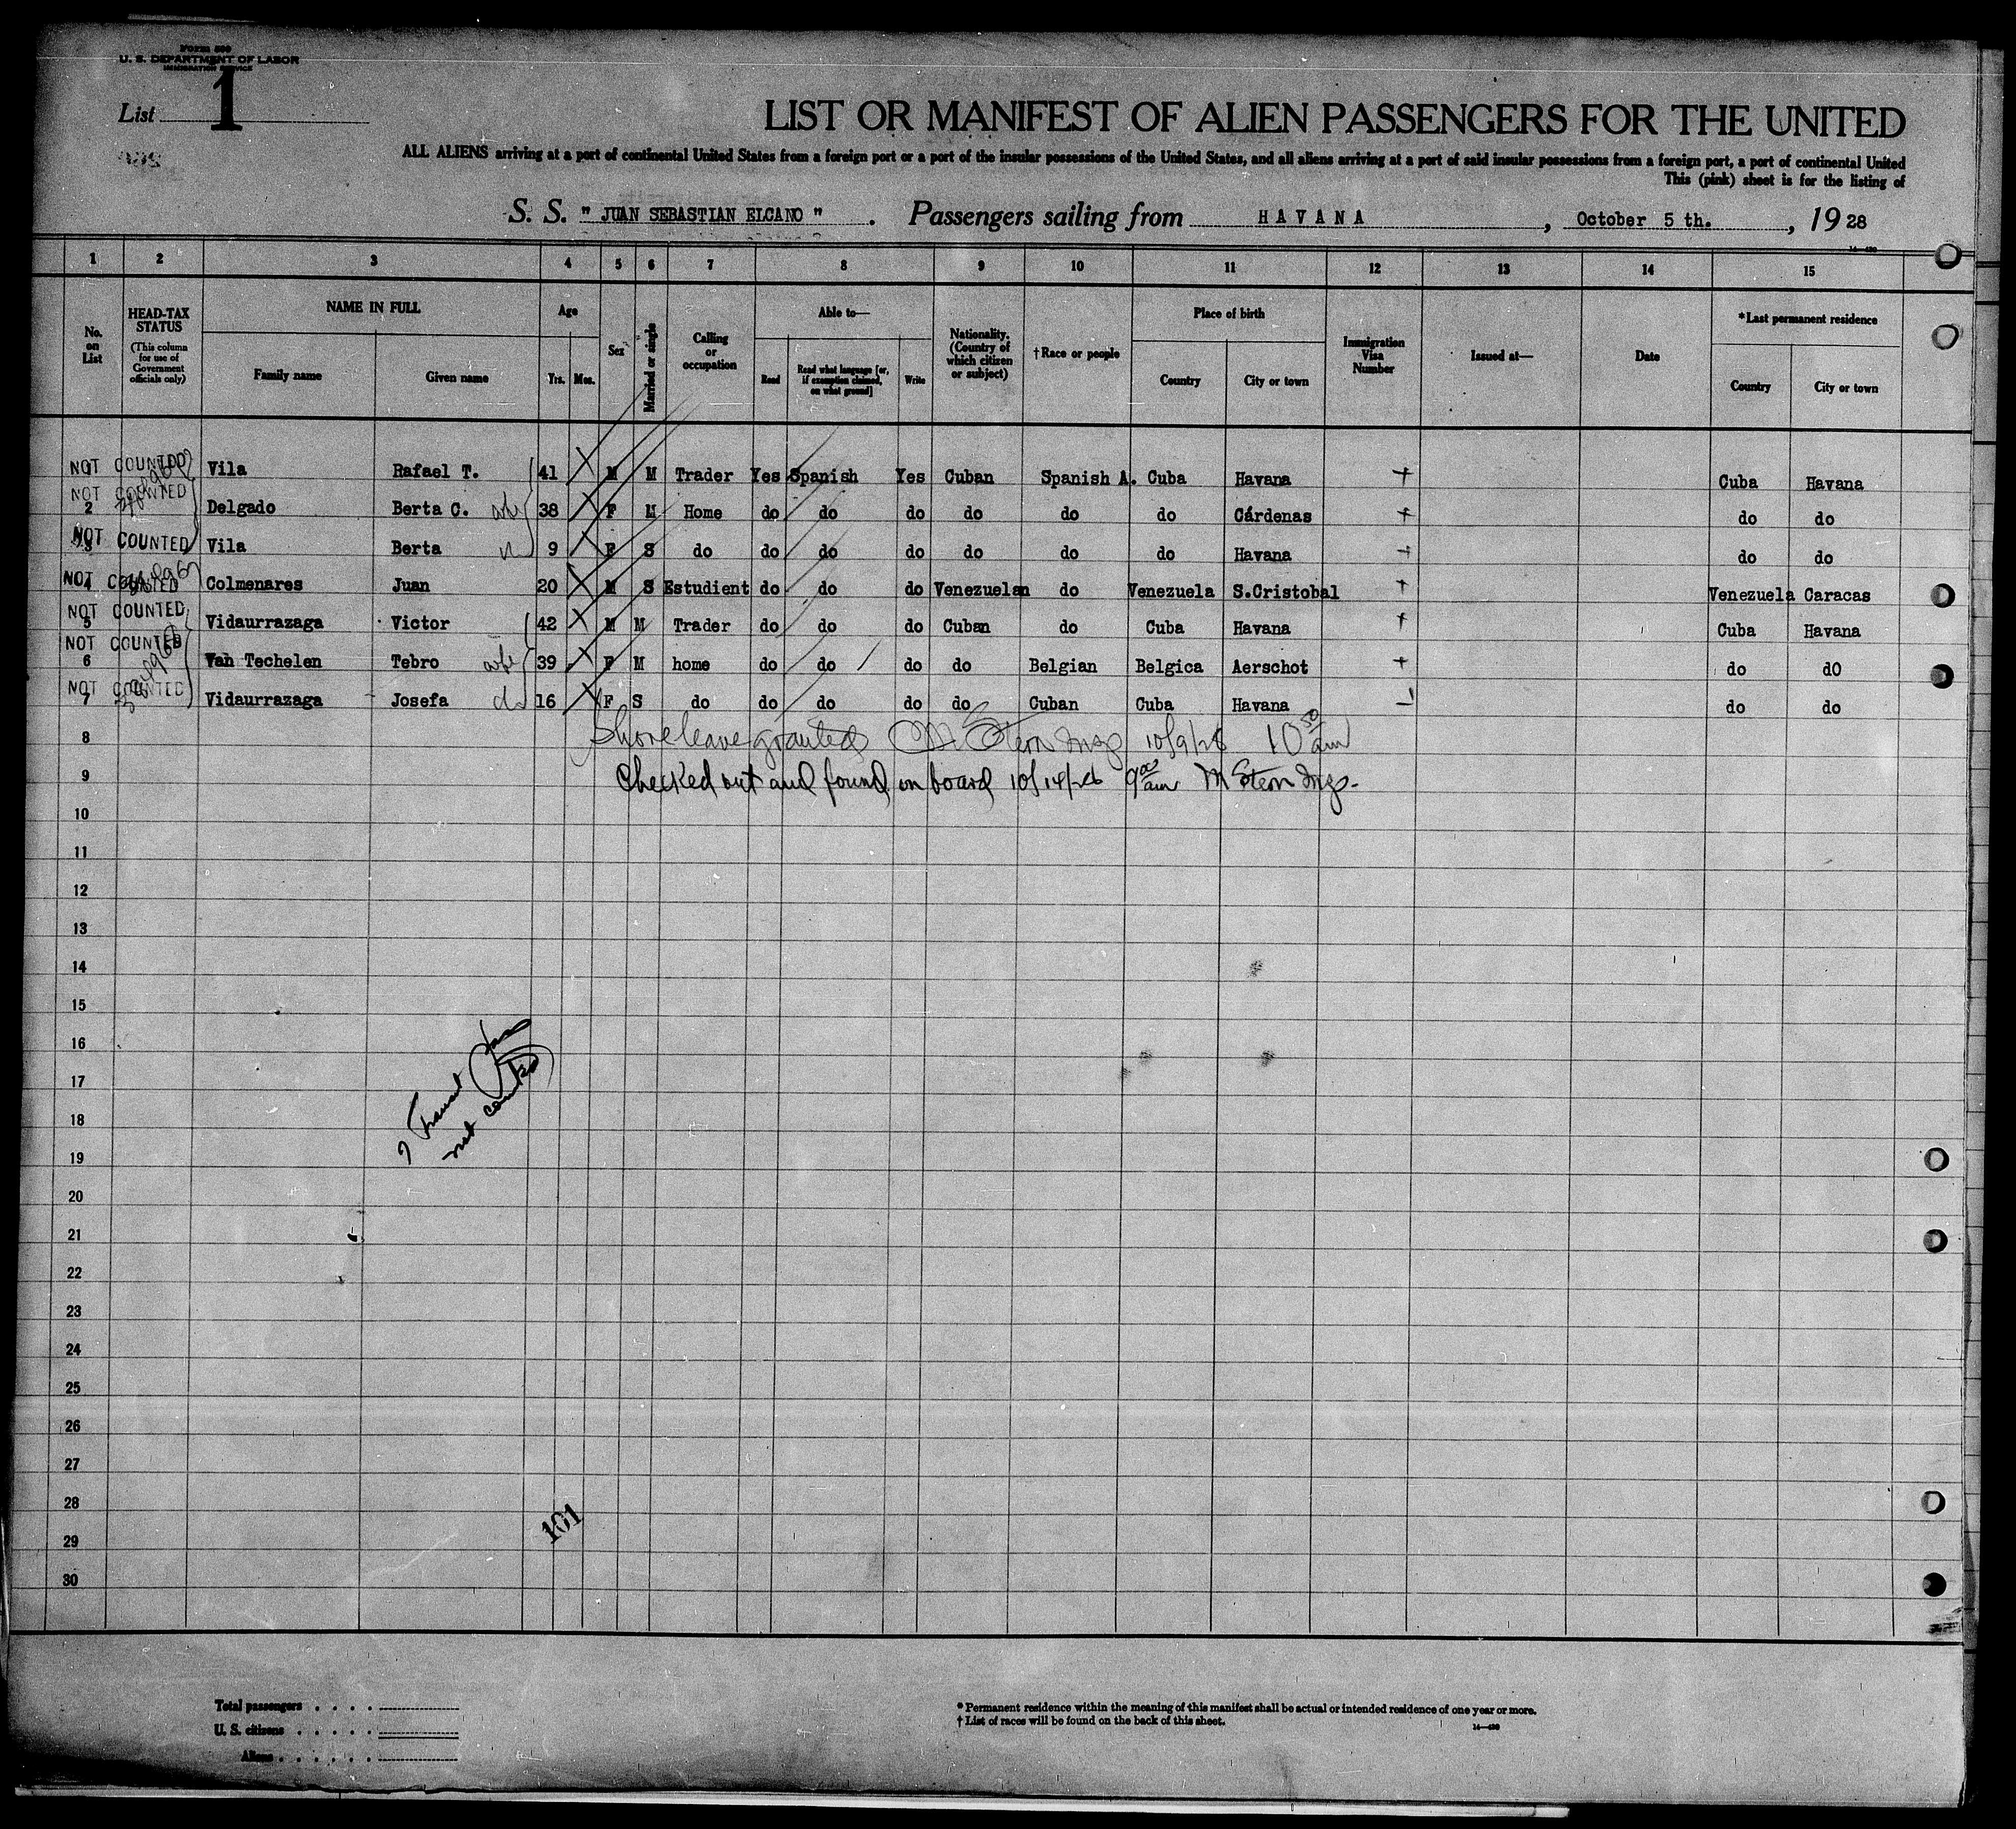 Form 500
U. S. DEPARTMENT OF LABOR
IMMIGRATION SERVICE
List 1
LIST OR MANIFEST OF ALIEN PASSENGERS FOR THE UNITED
ALL ALIENS arriving at a port of continental United States from a foreign port or a port of the insular possessions of the United States, and all aliens arriving at a port of said insular possessions from a foreign port, a port of continental United
This (pink) sheet is for the listing of
S. S. " JUAN SEBASTIAN ELCANO " . Passengers sailing from HAVANA , October 5 th. , 19 28
1 2 3 4 5 6 7 8 9 10 11 12 13 14 15
No. on List HEAD-TAX STATUS (This column for use of Government officials only) NAME IN FULL Family name Given name Age Yrs. Mos. Sex Married or single Calling or occupation Able to— Read Read what language [or, if exemption claimed, on what ground] Write Nationality. (Country of which citizen or subject) †Race or people Place of birth Country City or town Immigration Visa Number Issued at— Date *Last permanent residence Country City or town
1 NOT COUNTED Vila Rafael T. 41 M M Trader Yes Spanish Yes Cuban Spanish A. Cuba Havana Cuba Havana
2 NOT COUNTED Delgado Berta C. wife 38 F M Home do do do do do do Cárdenas do do
3 NOT COUNTED Vila Berta 9 F S do do do do do do do Havana do do
4 NOT COUNTED Colmenares Juan 20 M S Estudient do do do Venezuelan do Venezuela S.Cristobal Venezuela Caracas
5 NOT COUNTED Vidaurrazaga Victor 42 M M Trader do do do Cuban do Cuba Havana Cuba Havana
6 NOT COUNTED Van Techelen Tebro wife 39 F M home do do do do Belgian Belgica Aerschot do dO
7 NOT COUNTED Vidaurrazaga Josefa 16 F S do do do do do Cuban Cuba Havana do do
8 Shore leave granted M Stern Insp 10/9/28 10 50 am
9 Checked out and found on board 10/14/28 9 00 am M Stern Insp.
10
11
12
13
14
15
16
17
18
19
20
21
22
23
24
25
26
27
28
29
30
7 Transit
not counted
101
Total passengers
U. S. citizens
Aliens
* Permanent residence within the meaning of this manifest shall be actual or intended residence of one year or more.
† List of races will be found on the back of this sheet.
14—430